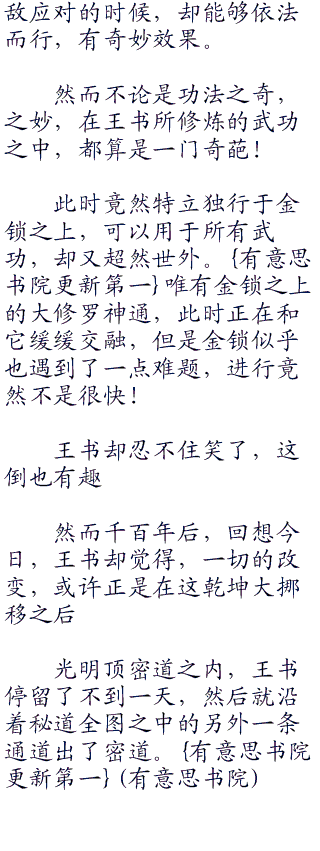 敌应对的时候，却能够依法
而行，有奇妙效果。
然而不论是功法之奇，
之妙，在王书所修炼的武功
之中，都算是一门奇葩！
此时竟然特立独行于金
锁之上，可以用于所有武
功，却又超然世外。{有意思
书院更新第一}唯有金锁之上
的大修罗神通，此时正在和
它缓缓交融，但是金锁似乎
也遇到了一点难题，进行竟
然不是很快！
王书却忍不住笑了，这
倒也有趣
然而千百年后，回想今
日，王书却觉得，一切的改
变，或许正是在这乾坤大挪
移之后
光明顶密道之内，王书
停留了不到一天，然后就沿
着秘道全图之中的另外一条
通道出了密道。{有意思书院
更新第一}(有意思书院)